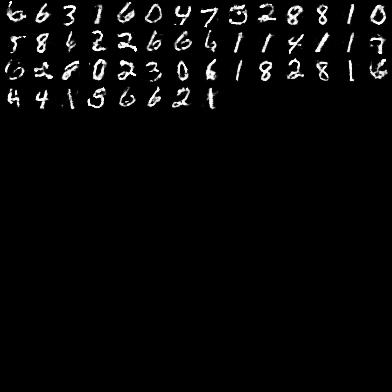 6 6 3 1 6 0 4 7 3 2 8 8 1 0
5 8 6 2 2 6 6 6 1 1 4 1 1 7
0 2 8 0 2 3 0 6 1 8 2 8 1 6
4 4 1 5 6 6 2 1